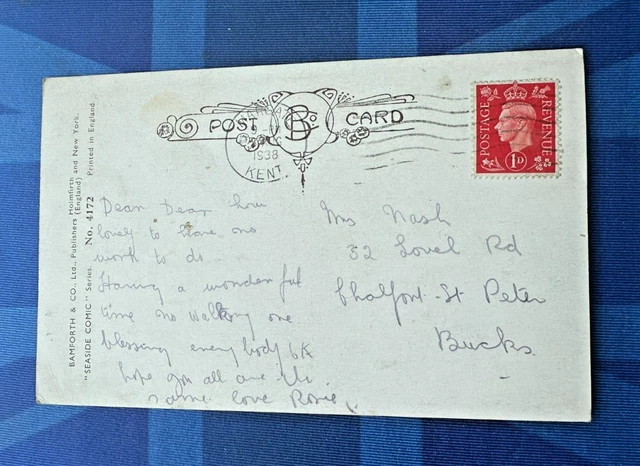 POST CARD
B & Co
1938
KENT.
POSTAGE REVENUE
1D
BAMFORTH & CO., Ltd., Publishers Holmfirth and New York.
(England)
"SEASIDE COMIC" Series. No. 4172 Printed in England.
Dear Dear how
lovely to have no
work to do.
Having a wonderful
time no walking one
blessing everybody OK
hope you all are the
same love Rosie
Mrs Nash
32 Lovel Rd
Chalfont St Peter
Bucks.